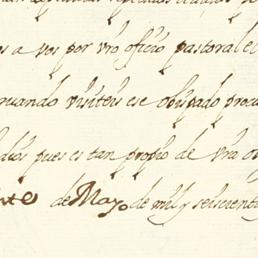 a vos por vro officio pastoral el
quando visiteis ese obispado procu
dios pues es tan propio de vra o
de Mayo de mil y seiscient